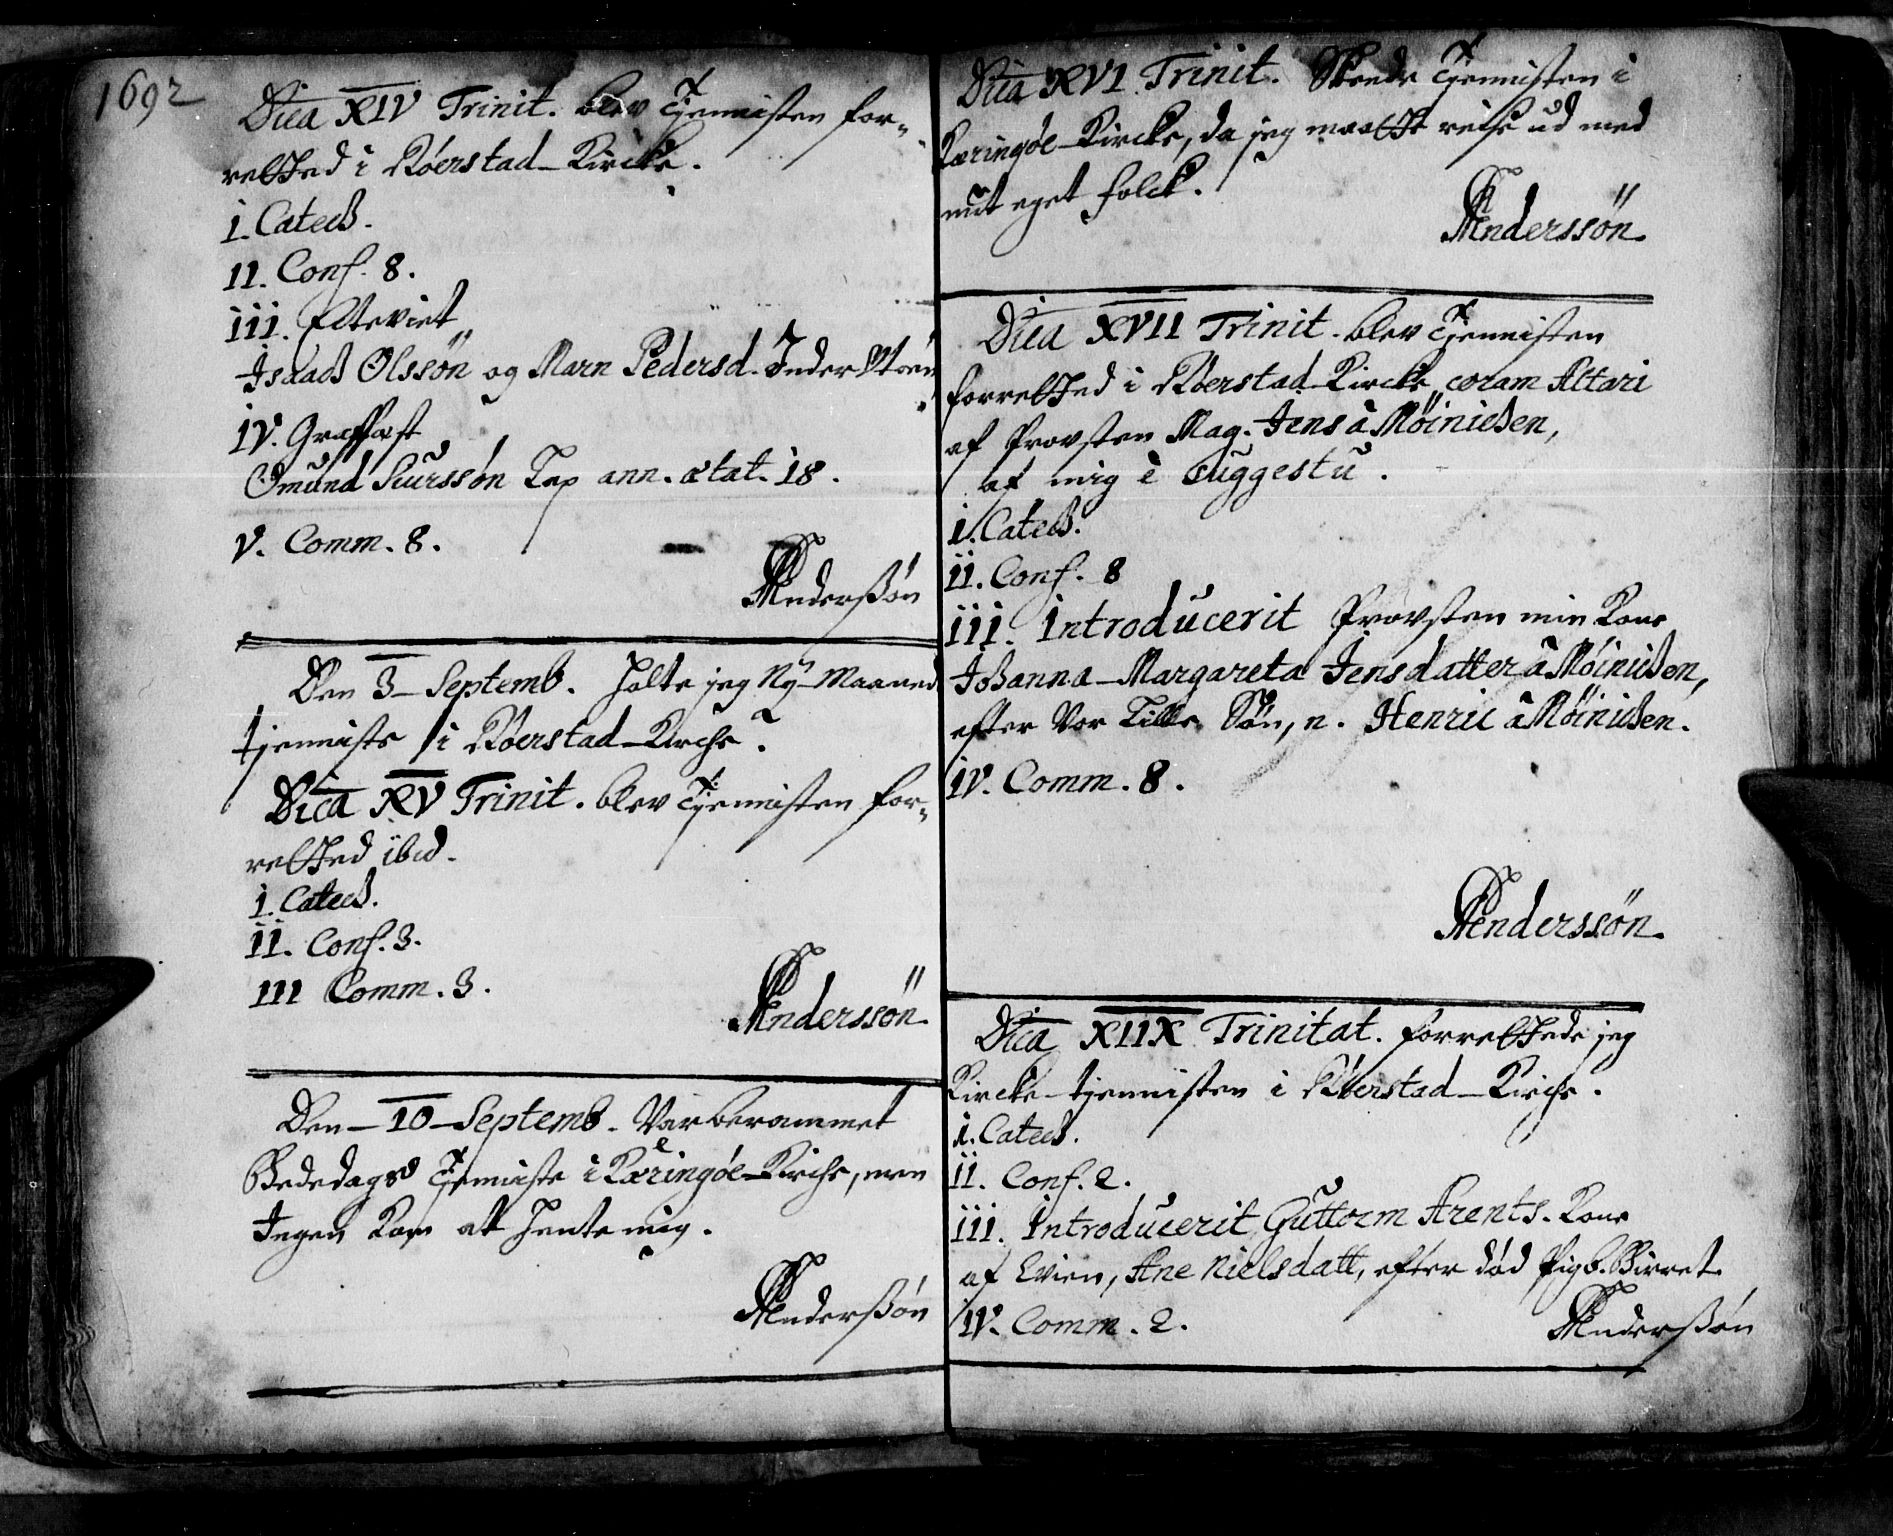 1692
Dica XIV Trinit. blev Tjennisten for-
retted i Röerstad-Kircke.
I. Catech.
II. Conf. 8.
III. Ecteviet
Isaach Olssön og Marn Pedersd. Inder
IV. Graffæst
Omund Siurssön Lap ann. ætat. 18.
V. Comm. 8.
Anderssön
Den 3 Septemb. holte jeg Ny-Maaned
tjenniste i Röerstad-Kirche.
Dica XV Trinit. blev Tjennisten for-
retted ibid.
I. Catech.
II. Conf. 3.
III Comm. 3.
Anderssön
Den 10 Septemb. Var berammet
Bededags Tjenniste i Kæringöe-Kirche, men
Ingen kom at hente mig.
Anderssön
Dica XVI Trinit. Skeede Tjennisten i
Kæringöe-Kircke, da jeg maatte reise ud med
mit eget folck.
Anderssön
Dica XVII Trinit. blev Tjennisten
forretted i Röerstad-Kircke, coram Altari
af Provsten Mag. Jens à Möinichen,
af mig è suggestu.
I. Catech.
II. Conf. 8
III. Introducerit Provsten min Kone
Johanna-Margareta Jensdatter à Möinichen,
efter Vor Lille Sön, n. Henric à Möinichen.
IV. Comm. 8.
Anderssön
Dica XIIX Trinitat. forrettede jeg
Kircke-tjennisten i Röerstad-Kirche.
I. Catech.
II. Conf. 2.
III. Introducerit Guttorm Arents. Kone
af Evien, Ane Nielsdatt, efter död Pigb. Birret
IV. Comm. 2.
Anderssön